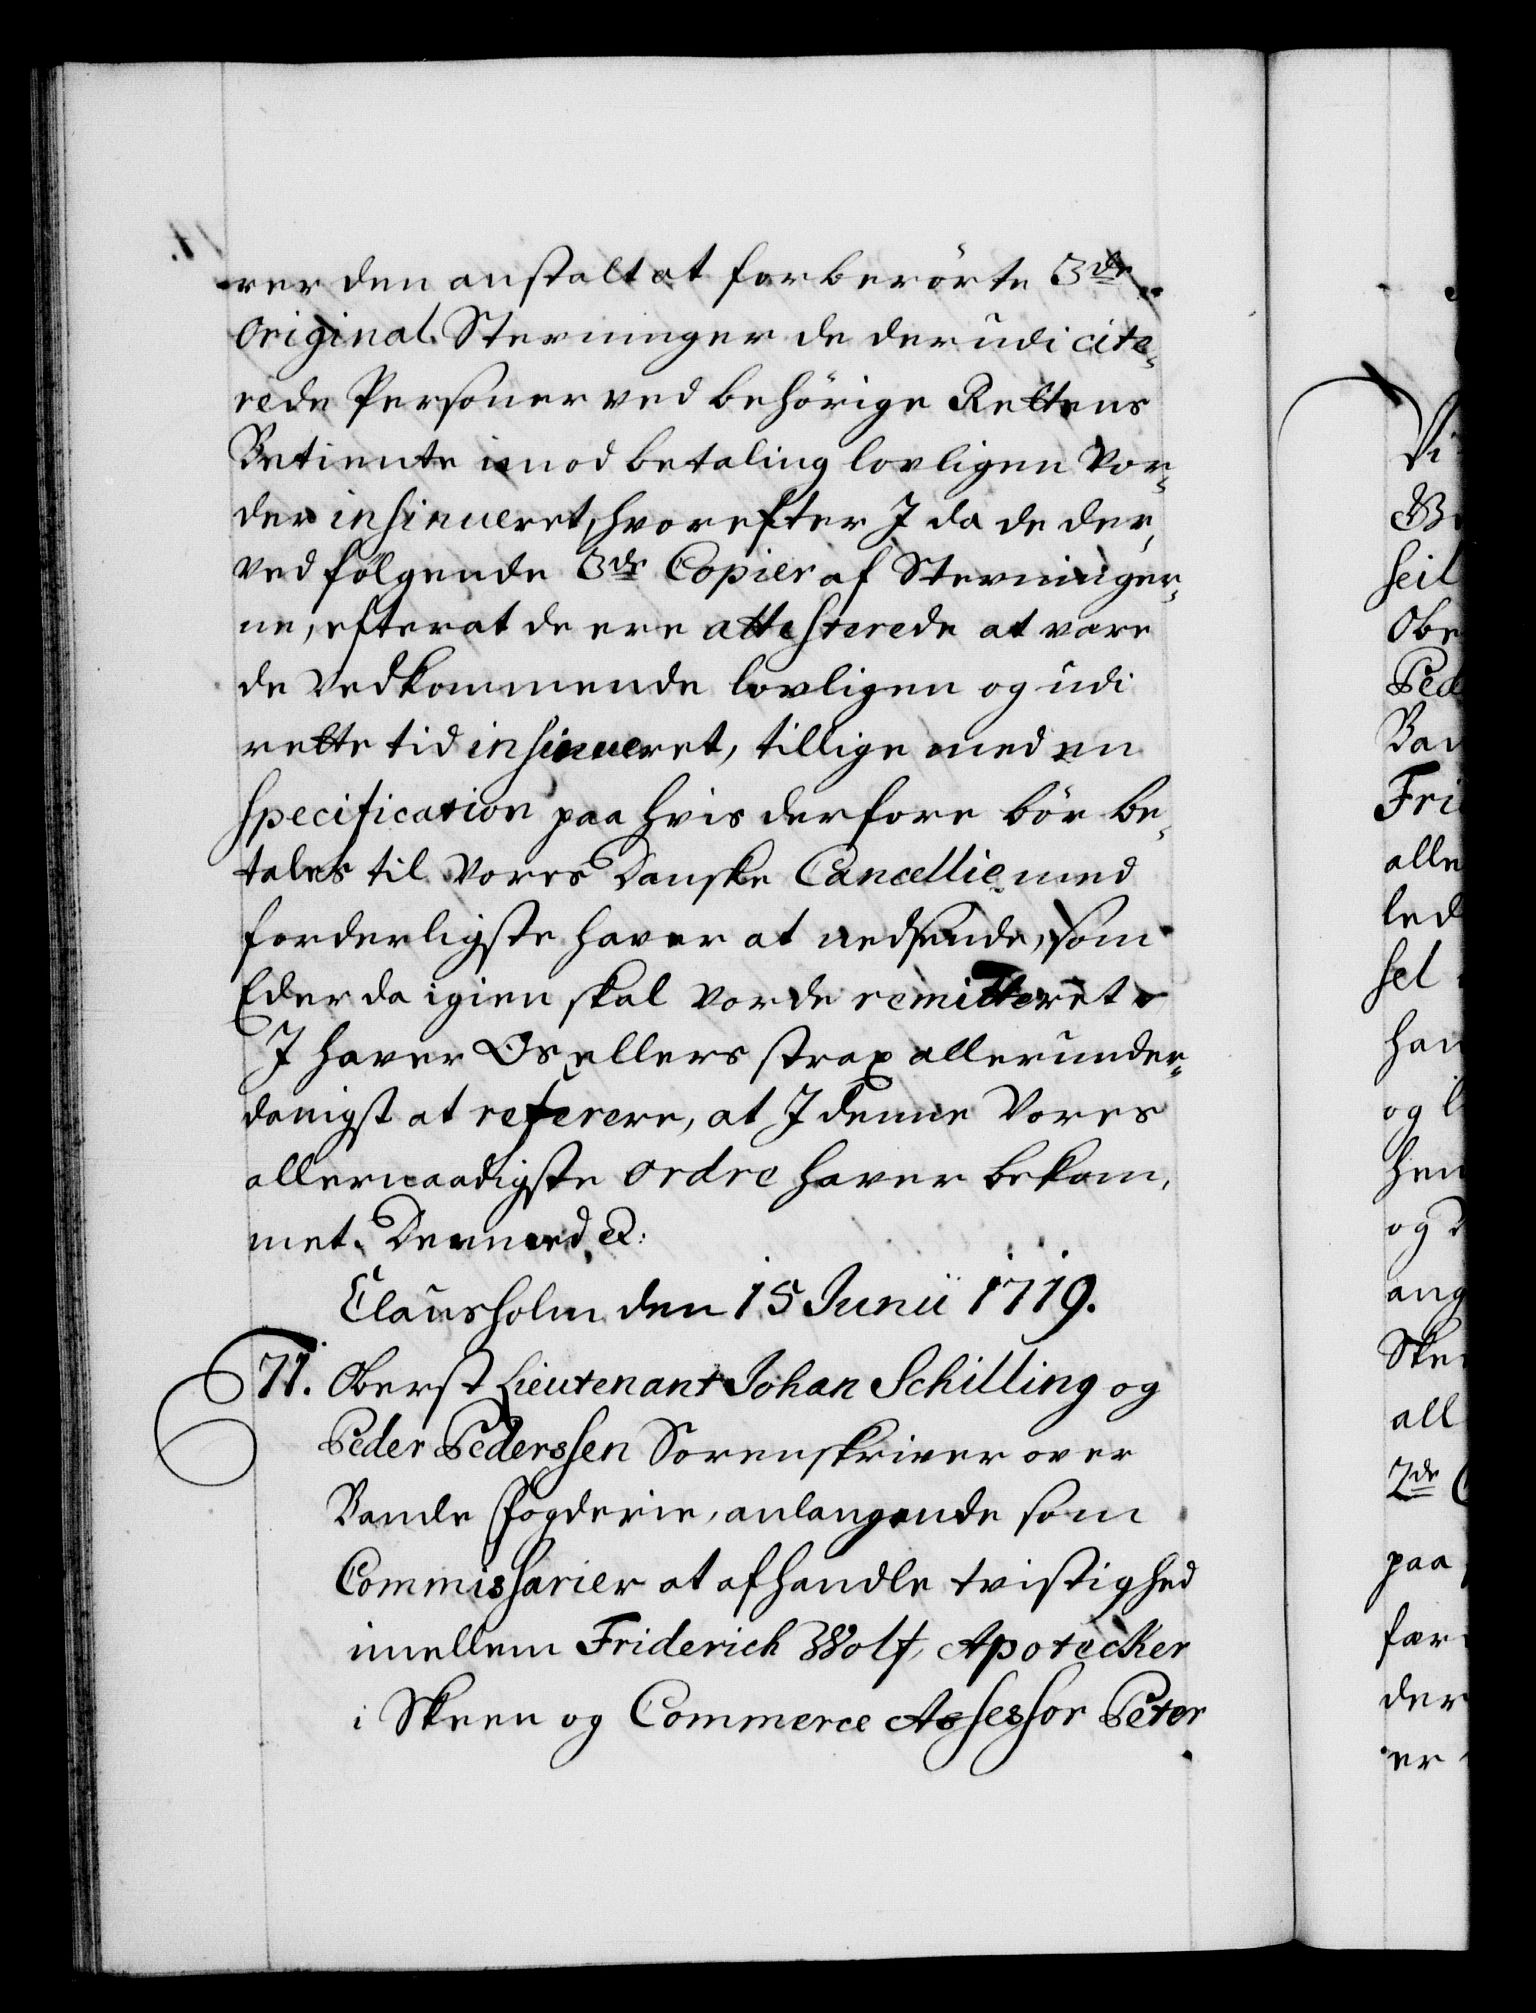 rer den anstalt at forberörte 3de
Original Stevninger de der udi cite-
rede Personer ved behörige Rettens
Betiente imod betaling lovligen vor-
der insinueret, hvorefter I da de der,
ved fölgende 3de Copier af Stevninger-
ne, efter at de ere attesterede at være
de Vedkommende lovligen og udi
rette tid insinueret, tillige med en
Specification paa hvis derfore bör be-
tales til Vores Danske Cancellie med
forderligste haver at nedsende, som
Eder da igien skal vorde remitteret
I haver Os ellers strax allerunder-
danigst at referere, at I denne Vores
allernaadigste ordre haver bekom,
met. Dermed &:
Clausholm den 15 Junii 1719.
71. Oberst Lieutenant Johan Schilling og
Peder Pederssen Sorenskriver over
Bamle Fogderie, anlangende som
Commissarier at afhandle tvistighed
imellem Friderich Wolf, Apotecker
i Skeen og Commerce Assessor Peter
Vi
seil
Obe
Ped
Bam
Fri
alle
led
sel
han
og
hen
og
ang
Ske
all
2de
paa
for
der
er